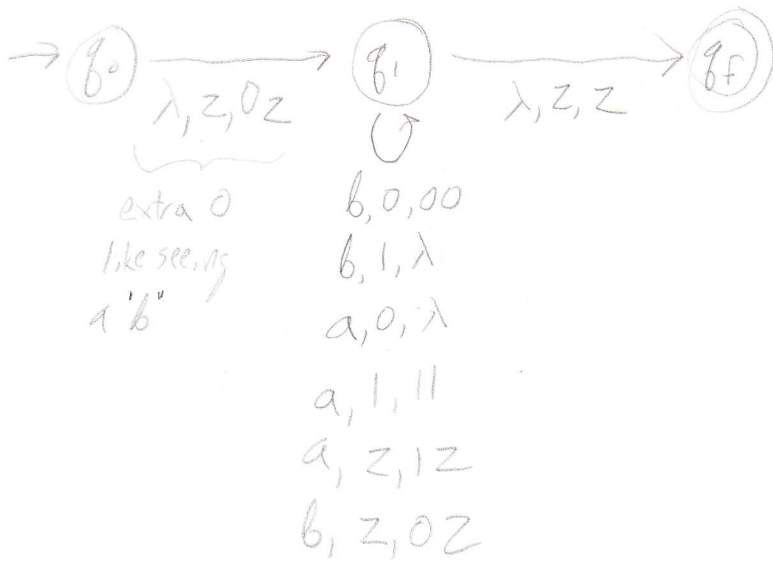 → q₀ → q₁ → q_f
λ, z, 0z
λ, z, z
extra 0
like seeing
a "b"
b, 0, 00
b, 1, λ
a, 0, λ
a, 1, 11
a, z, 1z
b, z, 0z